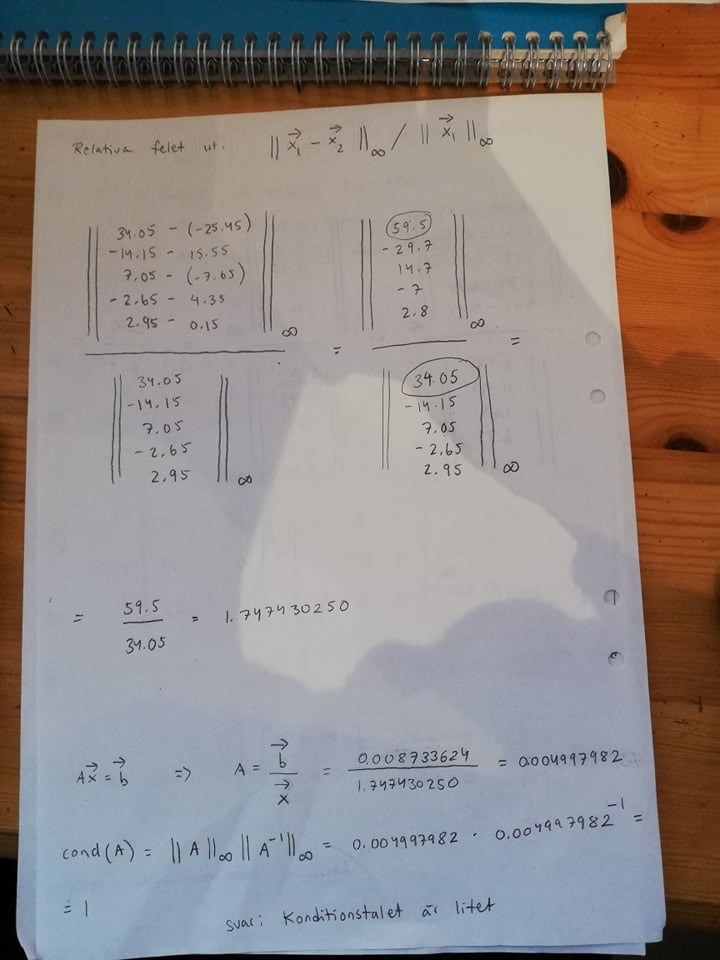 Relativa felet ut. || x⃗₁ - x⃗₂ ||∞ / || x⃗₁ ||∞
34.05 - (-25.45)
-14.15 - 15.55
7.05 - (-7.65)
-2.65 - 4.35
2.95 - 0.15
∞
34.05
-14.15
7.05
-2.65
2.95
∞
=
59.5
-29.7
14.7
-7
2.8
∞
34.05
-14.15
7.05
-2.65
2.95
∞
=
= 59.5 / 34.05 = 1.747430250
Ax⃗ = b⃗ => A = b⃗ / x⃗ = 0.008733624 / 1.747430250 = 0.004997982
cond(A) = || A ||∞ || A⁻¹ ||∞ = 0.004997982 · 0.004997982⁻¹ =
= 1
svar: Konditionstalet är litet